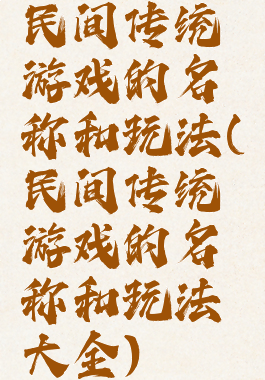 民间传统
游戏的名
称和玩法(
民间传统
游戏的名
称和玩法
大全)